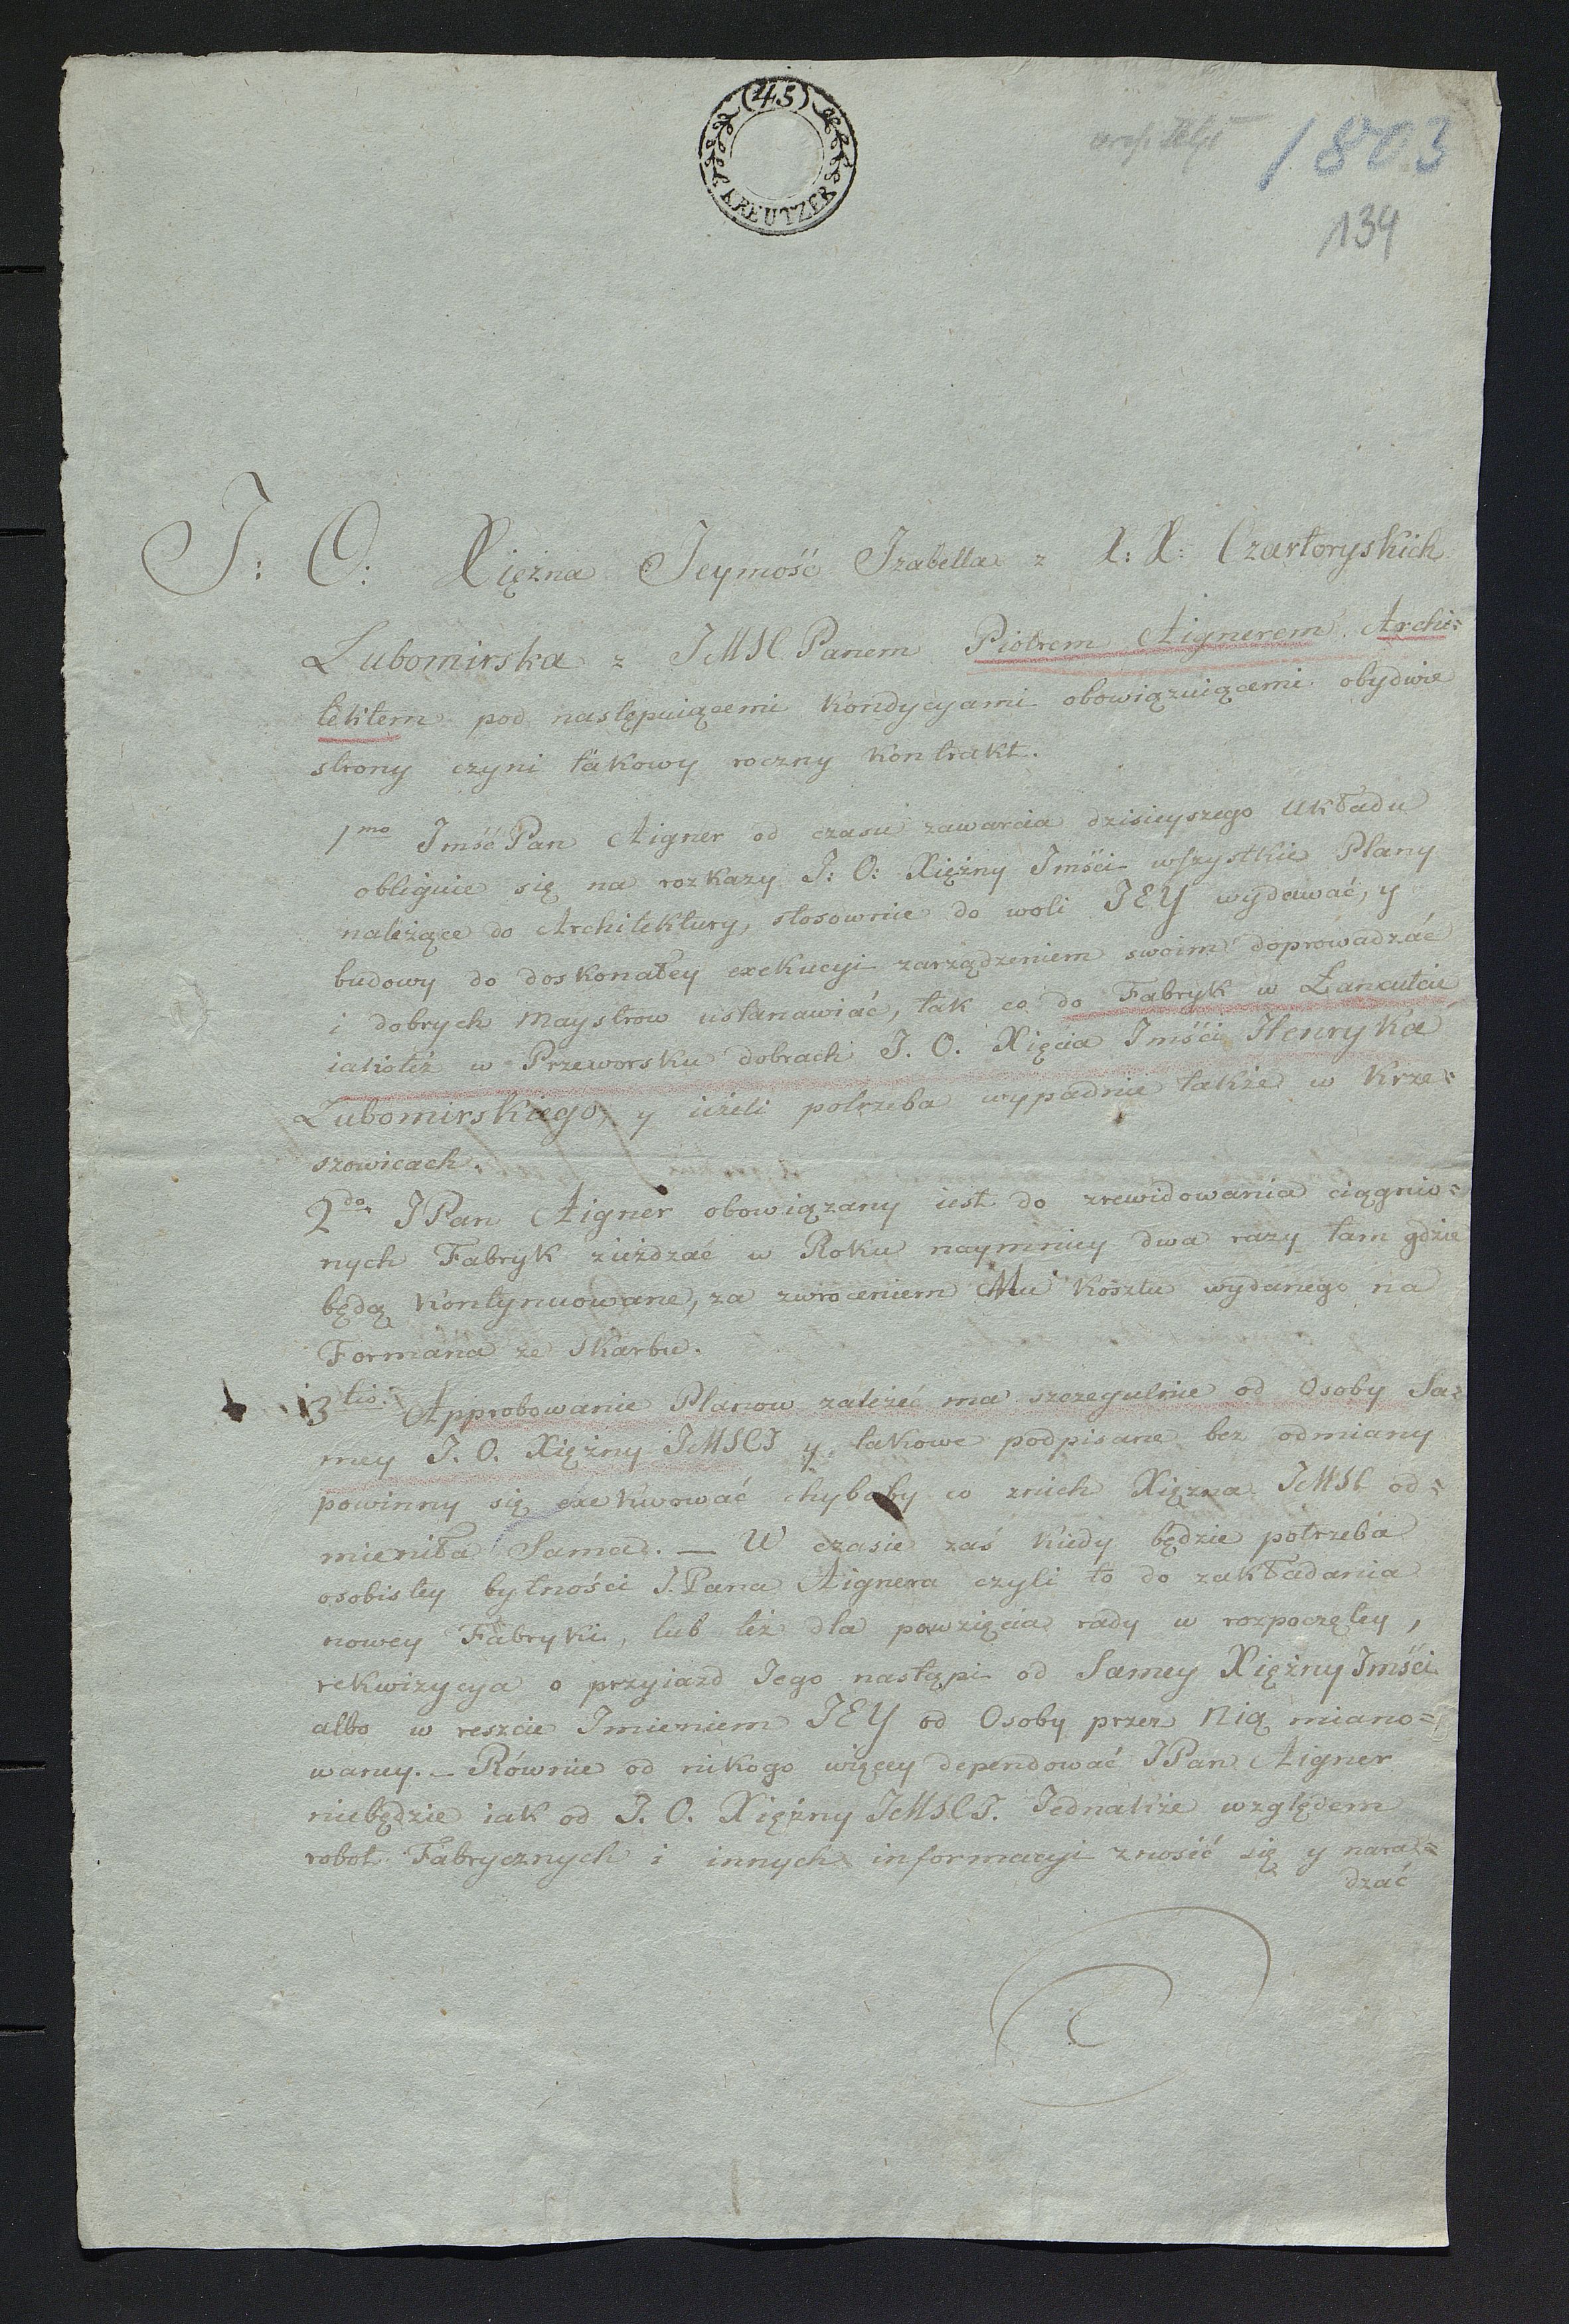 (45)
KREUTZER
1803
134
J: O: Xiężna Jeymość Izabella z X: X: Czartoryskich
Lubomirska z JMSC Panem Piotrem Aignerem Archi=
tektem pod następuiącemi Kondycyami obowiązuiącemi obydwie
strony czyni takowy roczny Kontrakt.
1mo Jmść Pan Aigner od czasu zawarcia dzisieyszego Układu
obliguie się na rozkazy J: O: Xiężny Jmści wszystkie Plany
należące do Architektury, stosownie do woli JEY wydawać, y
budowy do doskonałey exekucyi zarządzeniem swoim doprowadzać
i dobrych Maystrow ustanawiać, tak co do Fabryk w Łańcutcie
iakoteż w Przeworsku dobrach J. O. Xięcia Jmści Henryka
Lubomirskiego, y ieżeli potrzeba wypadnie także w Krze=
szowicach.
2do. JPan Aigner obowiązany iest do zrewidowania ciągnio=
nych Fabryk zieżdzać w Roku naymniey dwa razy tam gdzie
będą Kontynuowane, za zwroceniem Mu Kosztu wydanego na
Formana ze Skarbu.
3tio. Approbowanie Planow zależeć ma szczegulnie od Osoby Sa=
mey J. O. Xiężny JMSCI y takowe podpisane bez odmiany
powinny się exekwować chybaby co znich Xiężna JMSC od=
mieniła Sama. — W czasie zaś Kiedy będzie potrzeba
osobistey bytności J.Pana Aignera czyli to do zakładania
nowey Fabryki, lub też dla powzięcia rady w rozpoczętey,
rekwizycya o przyiazd Jego nastąpi od Samey Xiężny Jmści
albo w reszcie Jmieniem JEY od Osoby przez Nią miano=
waney. — Równie od nikogo więcey dependować JPan Aigner
niebędzie iak od J. O. Xiężny JMSCI. Jednakże względem
robot Fabrycznych i innych informacyi znosić się y nara=
dzać